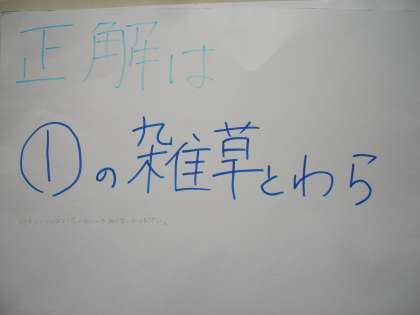 正解は
①の雑草とわら